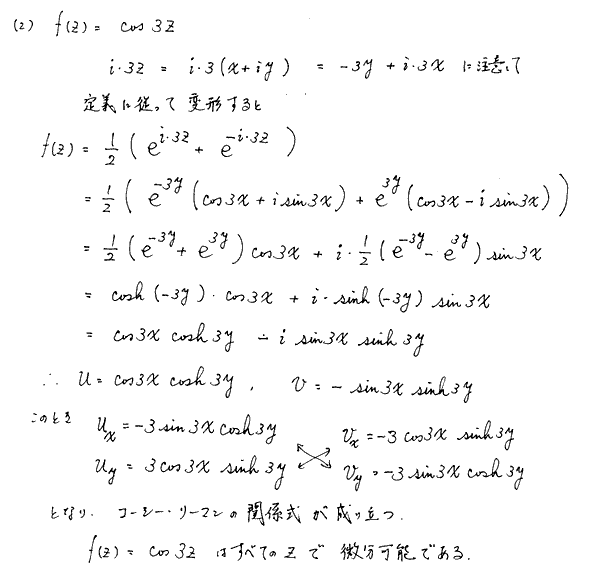 (2) f(z) = cos 3z
i・3z = i・3(x+iy) = -3y + i・3x に注意して
定義に従って変形すると
f(z) = 1/2 ( e^{i・3z} + e^{-i・3z} )
= 1/2 ( e^{-3y} (cos3x + i sin3x) + e^{3y} (cos3x - i sin3x) )
= 1/2 (e^{-3y} + e^{3y}) cos3x + i・1/2 (e^{-3y} - e^{3y}) sin3x
= cosh(-3y)・cos3x + i・sinh(-3y) sin3x
= cos3x cosh3y - i sin3x sinh3y
∴ u = cos3x cosh3y , v = - sin3x sinh3y
このとき u_x = -3 sin3x cosh3y v_x = -3 cos3x sinh3y
u_y = 3 cos3x sinh3y v_y = -3 sin3x cosh3y
となり. コーシー・リーマンの関係式が成り立つ.
f(z) = cos3z はすべてのzで微分可能である.